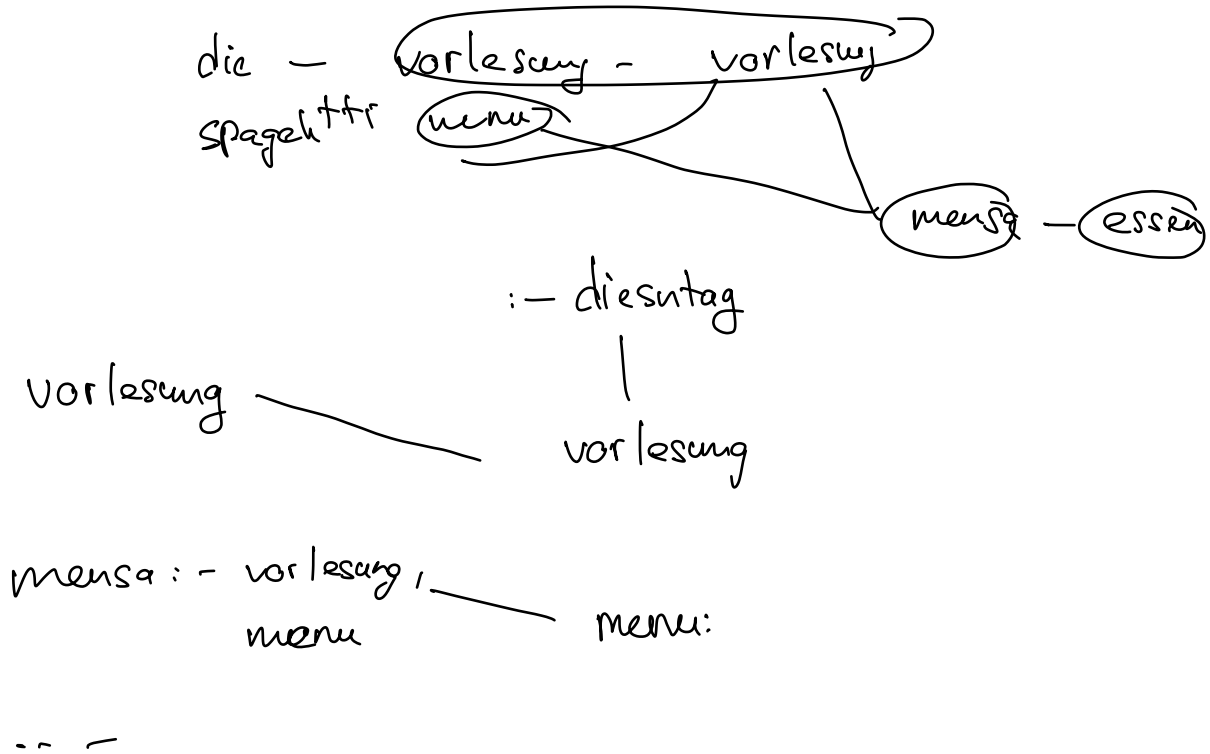 die - vorlesung - vorlesung
spagehtti menu
mensa - essen
:- diesntag
vorlesung
vorlesung
mensa :- vorlesung,
menu
menu: